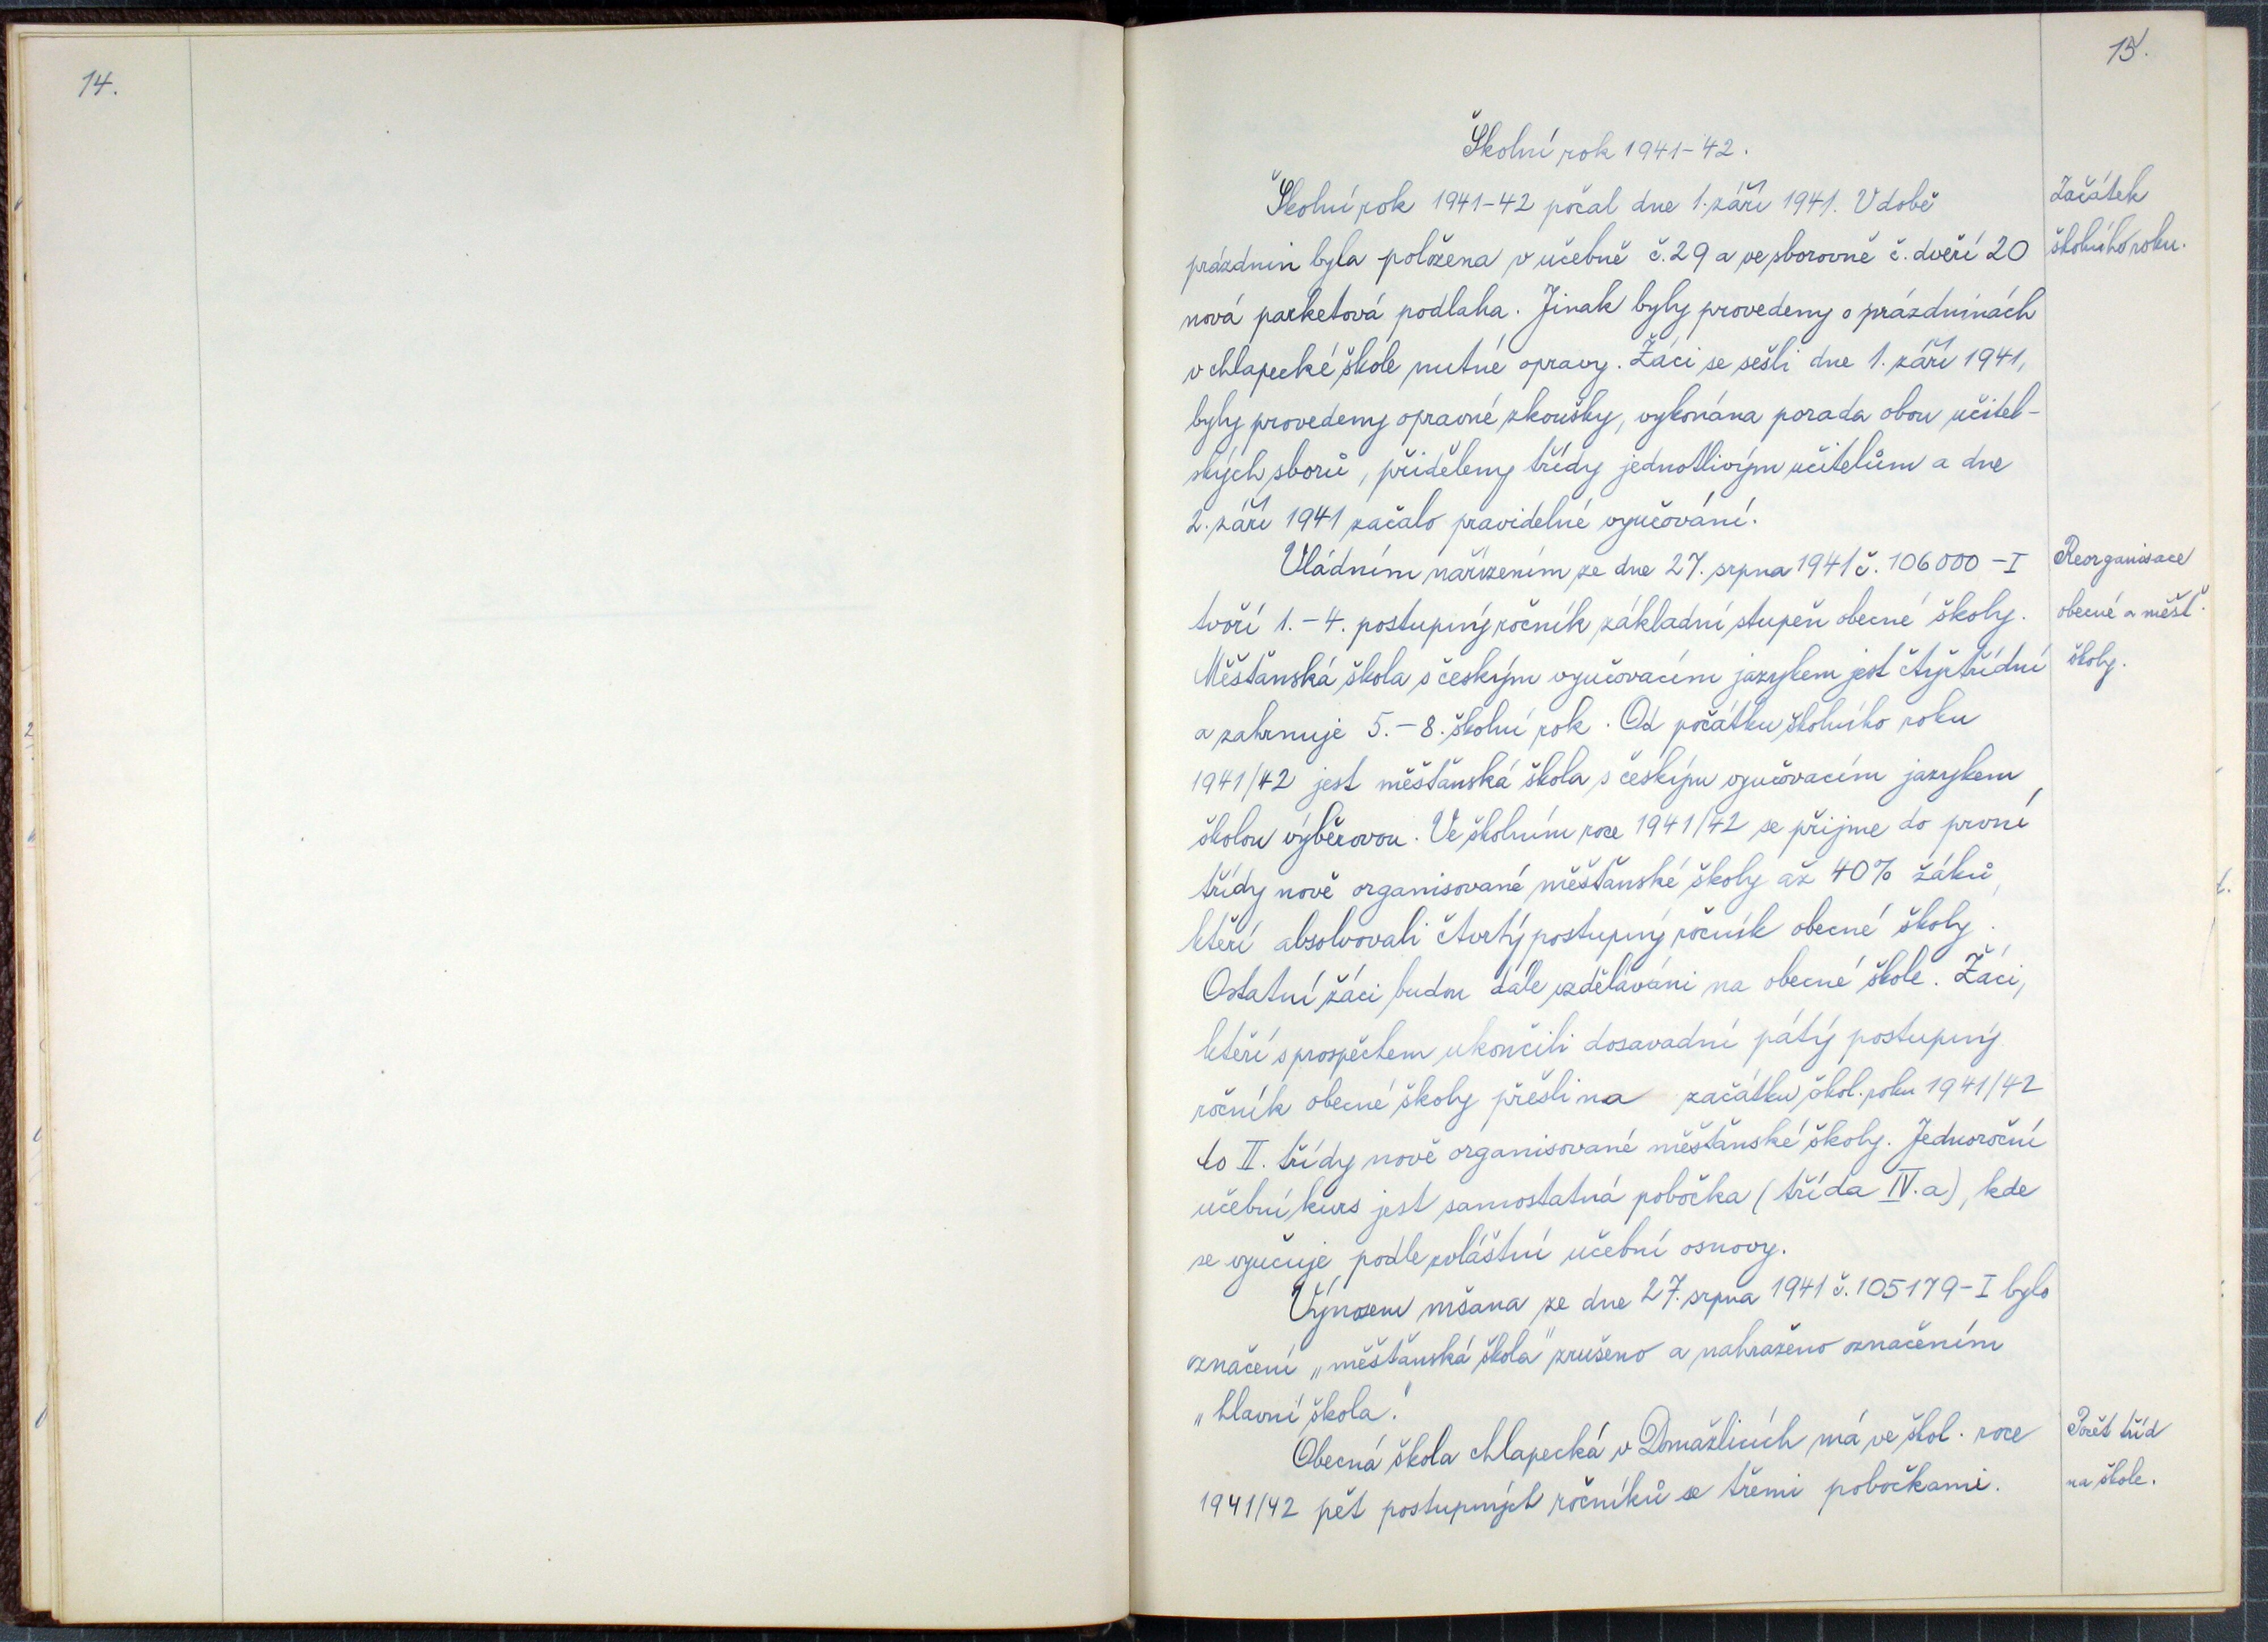 14.
15.
Školní rok 1941-42.
Školní rok 1941-42 počal dne 1. září 1941. V době
prázdnin byla položena v učebně č. 29 a ve sborovně č. dveří 20
nová parketová podlaha. Jinak byly provedeny o prázdninách
v chlapecké škole nutné opravy. Žáci se sešli dne 1. září 1941,
byly provedeny opravné zkoušky, vykonána porada obou učitel-
ských sborů, přiděleny třídy jednotlivým učitelům a dne
2. září 1941 začalo pravidelné vyučování.
Vládním nařízením ze dne 27. srpna 1941 č. 106000-I
tvoří 1.-4. postupný ročník základní stupeň obecné školy.
Měšťanská škola s českým vyučovacím jazykem jest čtyřtřídní
a zahrnuje 5.-8. školní rok. Od počátku školního roku
1941/42 jest měšťanská škola s českým vyučovacím jazykem
školou výběrovou. Ve školním roce 1941/42 se přijme do první
třídy nově organisované měšťanské školy až 40% žáků,
kteří absolvovali čtvrtý postupný ročník obecné školy.
Ostatní žáci budou dále vzděláváni na obecné škole. Žáci,
kteří s prospěchem ukončili dosavadní pátý postupný
ročník obecné školy přešli na začátku škol. roku 1941/42
do II. třídy nově organisované měšťanské školy. Jednoroční
učební kurs jest samostatná pobočka (třída IV.a), kde
se vyučuje podle zvláštní učební osnovy.
Výnosem mšana ze dne 27. srpna 1941 č. 105179-I bylo
označení „měšťanská škola" zrušeno a nahraženo označením
„hlavní škola".
Obecná škola chlapecká v Domažlicích má ve škol. roce
1941/42 pět postupných ročníků se třemi pobočkami.
Začátek
školního roku.
Reorganisace
obecné a měšť.
školy.
Počet tříd
na škole.